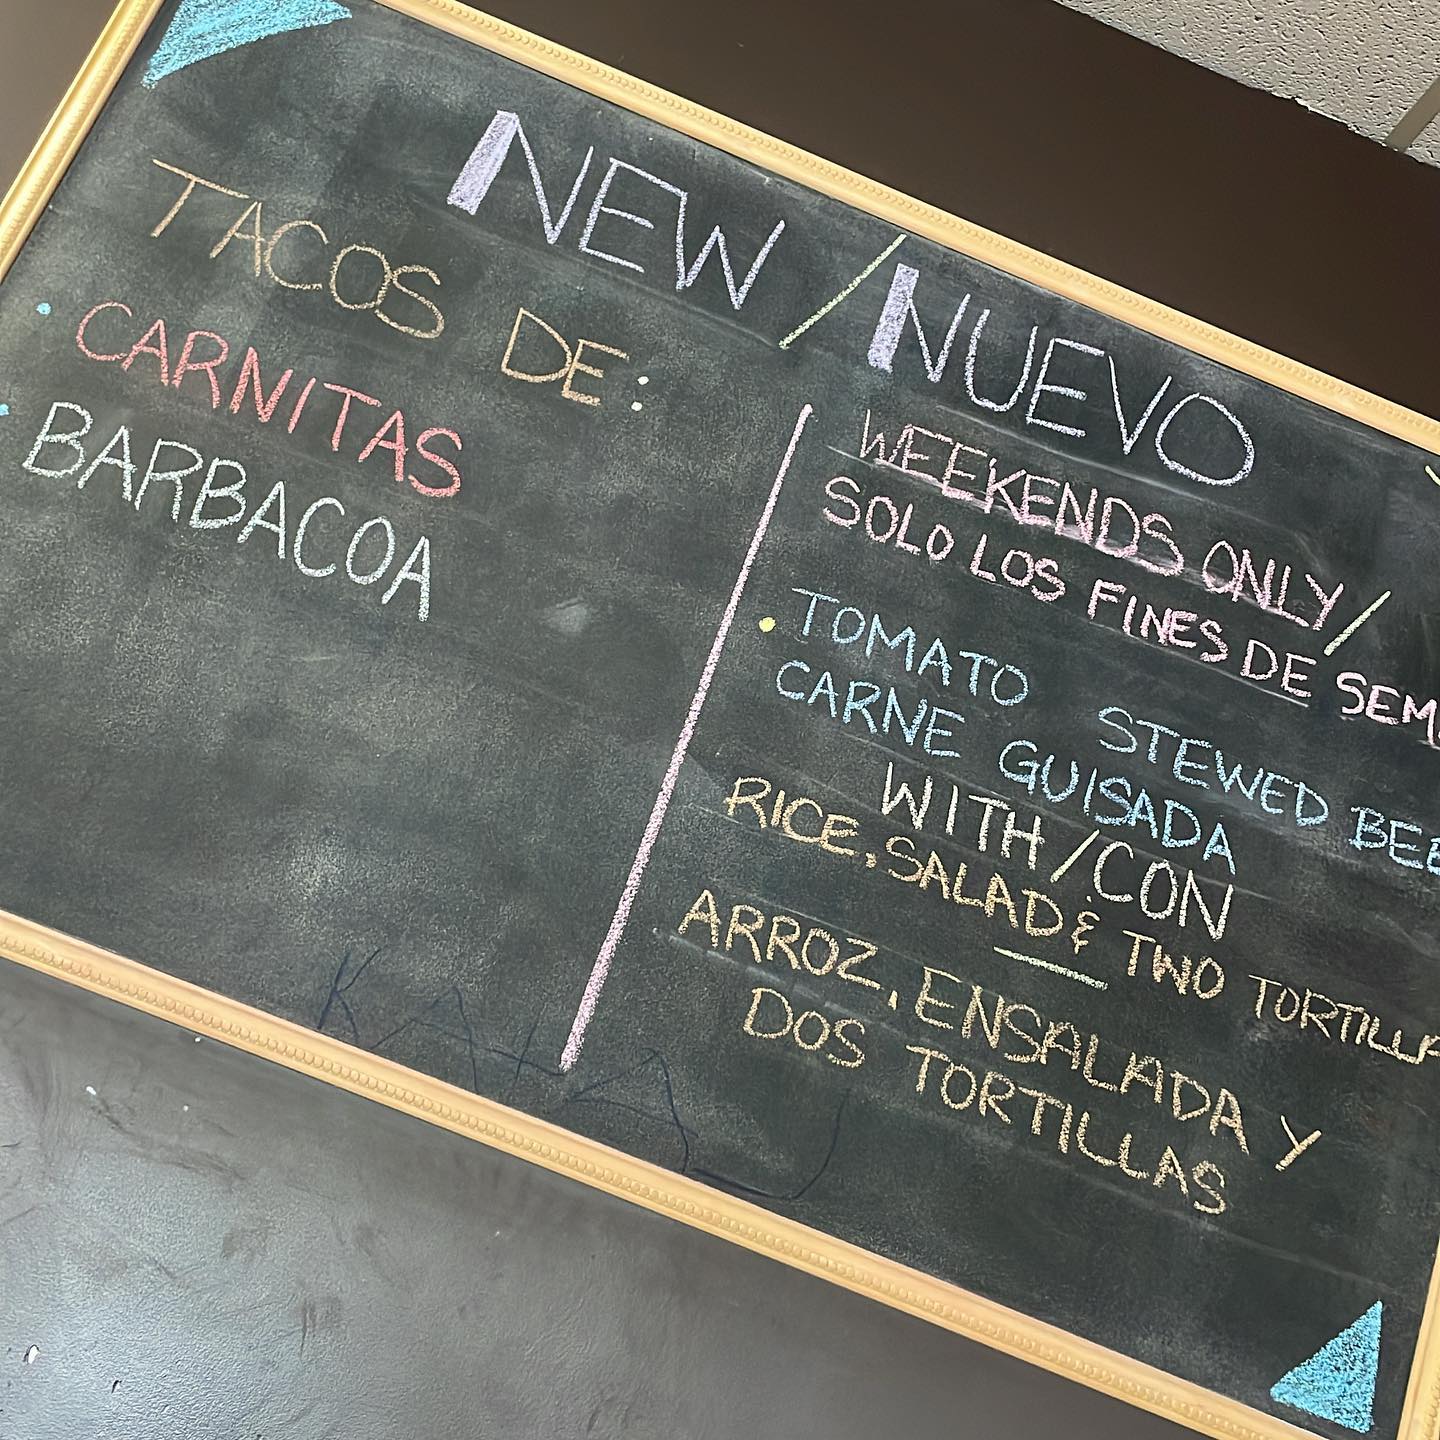 NEW / NUEVO
TACOS DE:
• CARNITAS
• BARBACOA
WEEKENDS ONLY /
SOLO LOS FINES DE SEM
• TOMATO STEWED BEE
CARNE GUISADA
WITH / CON
RICE, SALAD & TWO TORTILLA
ARROZ, ENSALADA Y
DOS TORTILLAS